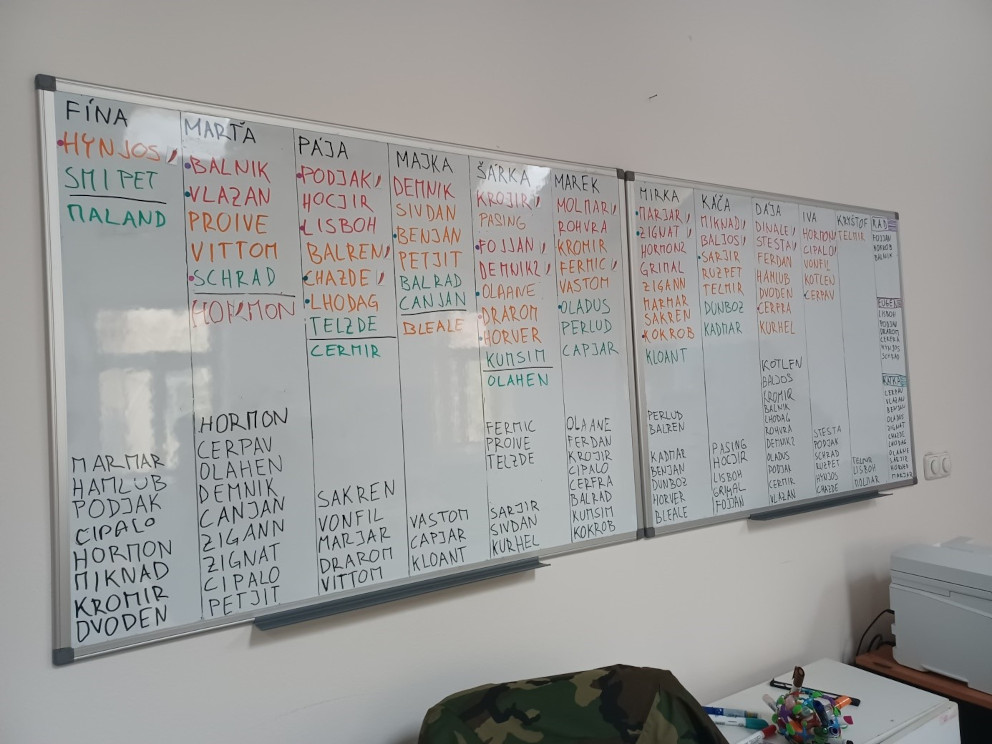 FÍNA
HYNJOS
SMIPET
MALAND
MARMAR
HAMLUB
PODJAK
CIPALO
HORMON
MIKNAD
KROMIR
DVODEN
MARŤA
BALNIK
VLAZAN
PROIVE
VITTOM
SCHRAD
HORMON
HORMON
CERPAV
OLAHEN
DEMNIK
CANJAN
ZIGANN
ZIGNAT
CIPALO
PETJIT
PÁJA
PODJAK
HOCJIR
LISBOH
BALREN
CHAZDE
LHODAG
TELZDE
CERMIR
SAKREN
VONFIL
MARJAR
DRAROM
VITTOM
MAJKA
DEMNIK
SIVDAN
BENJAN
PETJIT
BALRAD
CANJAN
BLEALE
VASTOM
CAPJAR
KLOANT
ŠÁRKA
KROJIR
PASING
FOJJAN
DEMNIK2
OLAANE
DRAROM
HORVER
KUMSIM
OLAHEN
FERMIC
PROIVE
TELZDE
SARJIR
SIVDAN
KURHEL
MAREK
MOLMAR
ROHVRA
KROMIR
FERMIC
VASTOM
OLADUS
PERLUD
CAPJAR
OLAANE
FERDAN
KROJIR
CIPALO
CERFRA
BALRAD
KUMSIM
KOKROB
MIRKA
MARJAR
ZIGNAT
HORMON2
GRIMAL
ZIGANN
MARMAR
SAKREN
KOKROB
KLOANT
PERLUD
BALREN
KADMAR
BENJAN
DUNBOZ
HORVER
BLEALE
KÁČA
MIKNAD
BALJOS
SARJIR
RUZPET
TECMIR
DUNBOZ
KADMAR
PASING
HOCJIR
LISBOH
GRIMAL
FOJJAN
DÁJA
DINALE
STESTA
FERDAN
HAMLUB
DVODEN
CERFRA
KURHEL
KOTLEN
BALJOS
KROMIR
BALNIK
LHODAG
ROHVRA
DEMNIK2
OLADUS
PODJAK
CERMIR
VLAZAN
IVA
HORMON
CIPALO
VONFIL
KOTLEN
CERPAV
STESTA
PODJAK
SCHRAD
RUZPET
HYNJOS
CHAZDE
KRYŠTOF
TELMIR
TELMIR
LISBOH
MOLMAR
RAD
FOJJAN
BALNIK
LISBOH
PODJAK
DRAROM
CERFRA
HYNJOS
SCHRAD
CERPAV
VLAZAN
BENJAN
OLADUS
ZIGNAT
CHAZDE
OLAANE
SARJIR